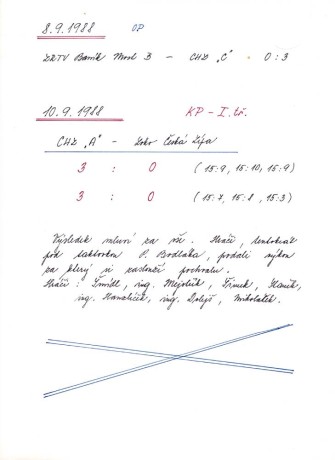 8.9.1988 OP
ZRTV Baník Most B - CHZ "C" - 0 : 3
10.9.1988 KP - I. tř.
CHZ "A" - Loko Česká Lípa
3 : 0 (15:9, 15:10, 15:9)
3 : 0 (15:7, 15:8, 15:3)
Výsledek mluví za vše. Hráči, tentokrát
pod taktovkou P. Bodláka, podali výkon
za který si zaslouží pochvalu.
Hráči : Šmídl, ing. Mejstřík, Šimek, Haník,
ing. Hanzlíček, ing. Dolejš, Mikolášek.